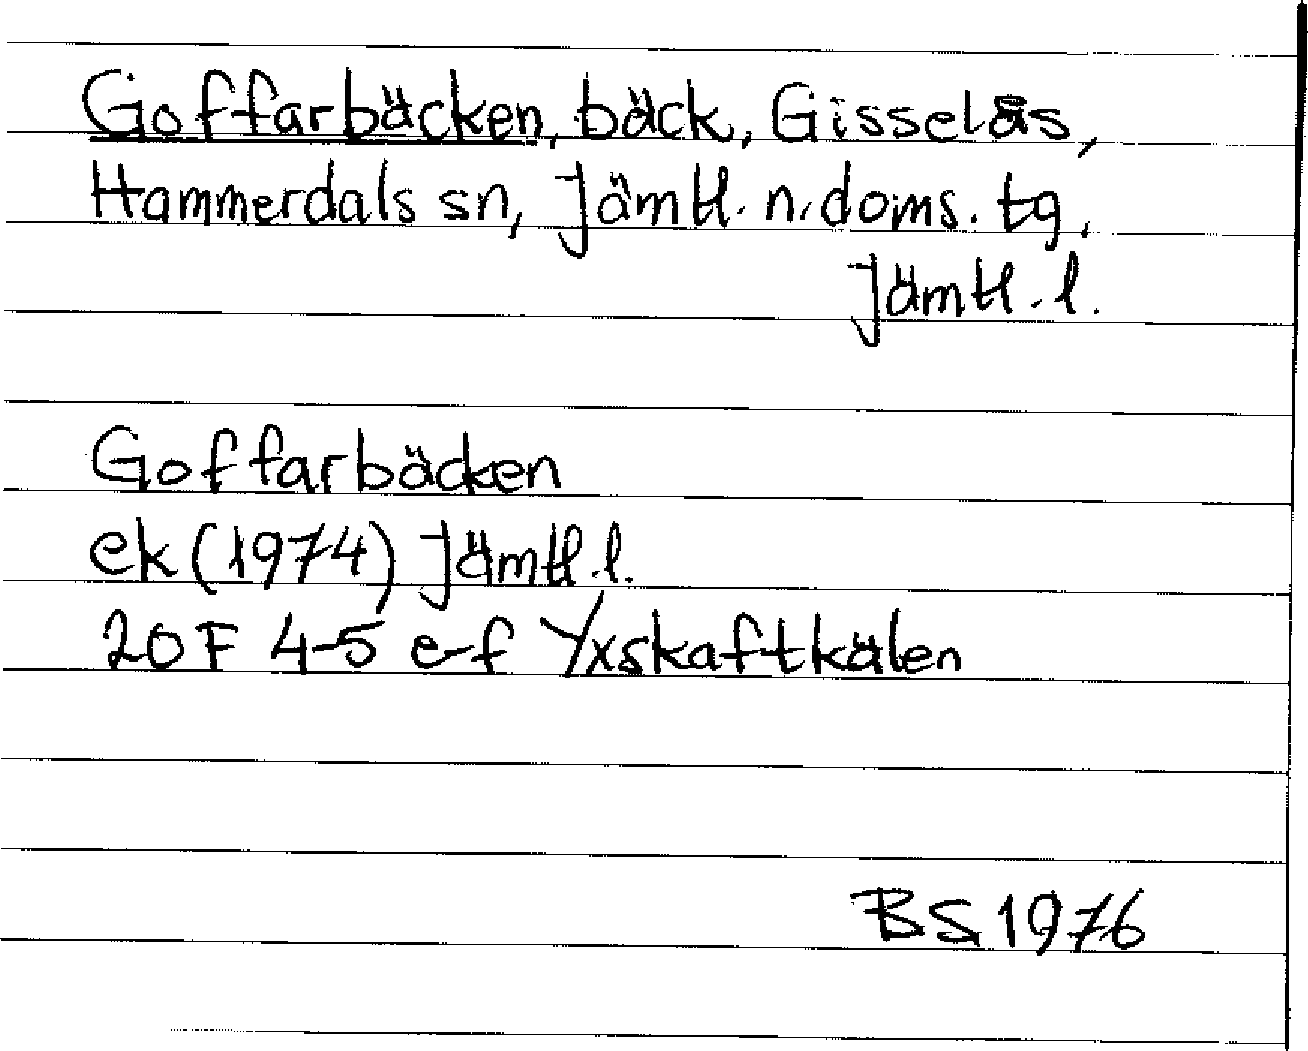 Goffarbäcken, bäck, Gisselås,
Hammerdals sn, Jämtl. n. doms. tg,
Jämtl. l.
Goffarbäcken
ek (1974) Jämtl. l.
20F 4-5 e-f Yxskaftkälen
BS 1976